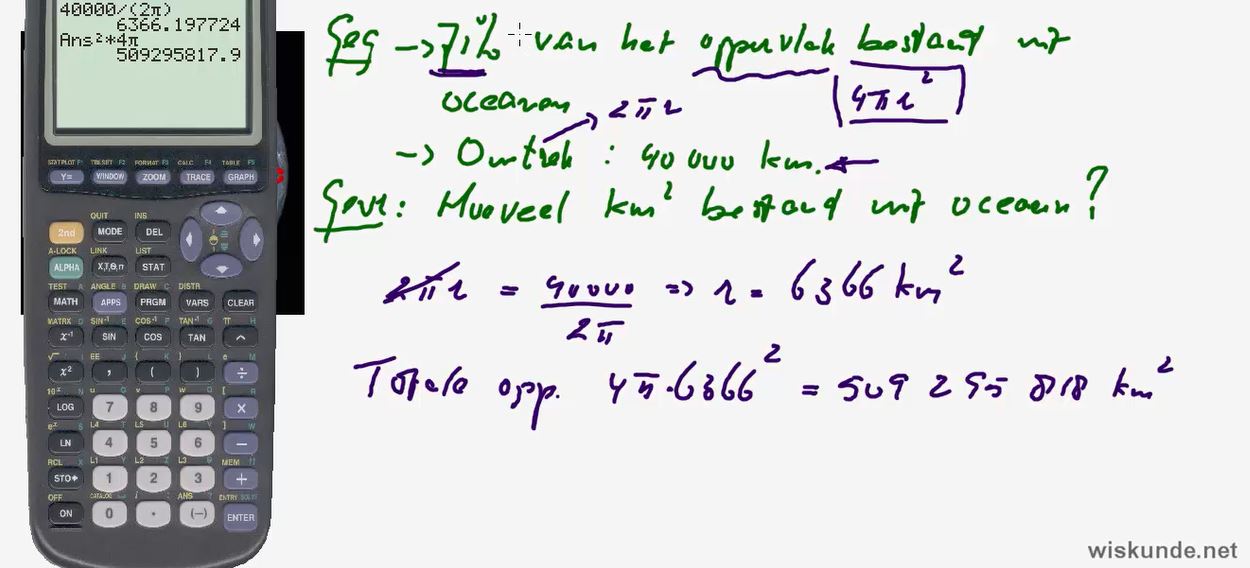 40000/(2π)
6366.197724
Ans²*4π
509295817.9
STATPLOT F1 TBLSET F2 FORMAT F3 CALC F4 TABLE F5
Y= WINDOW ZOOM TRACE GRAPH
QUIT INS
2nd MODE DEL
A-LOCK LINK LIST
ALPHA X,T,Θ,n STAT
TEST A ANGLE B DRAW C DISTR
MATH APPS PRGM VARS CLEAR
MATRX D SIN⁻¹ E COS⁻¹ F TAN⁻¹ G π H
x⁻¹ SIN COS TAN ^
√ I EE J { K } L e M
x² , ( ) ÷
10ˣ N u O v P w Q [ R
LOG 7 8 9 X
eˣ S L4 T L5 U L6 V ] W
LN 4 5 6 −
RCL X L1 Y L2 Z L3 θ MEM "
STO▸ 1 2 3 +
OFF CATALOG i : ANS ? ENTRY SOLVE
ON 0 . (−) ENTER
Geg → 71% van het oppervlak bestaand uit
4πr²
oceanen 2πr
→ Omtrek : 40 000 km.
Gevr: Hoeveel km² bestaand uit oceaan?
2πr = 40000 / 2π ⇒ r = 6366 km²
Totale opp. 4π·6366² = 509 295 818 km²
wiskunde.net